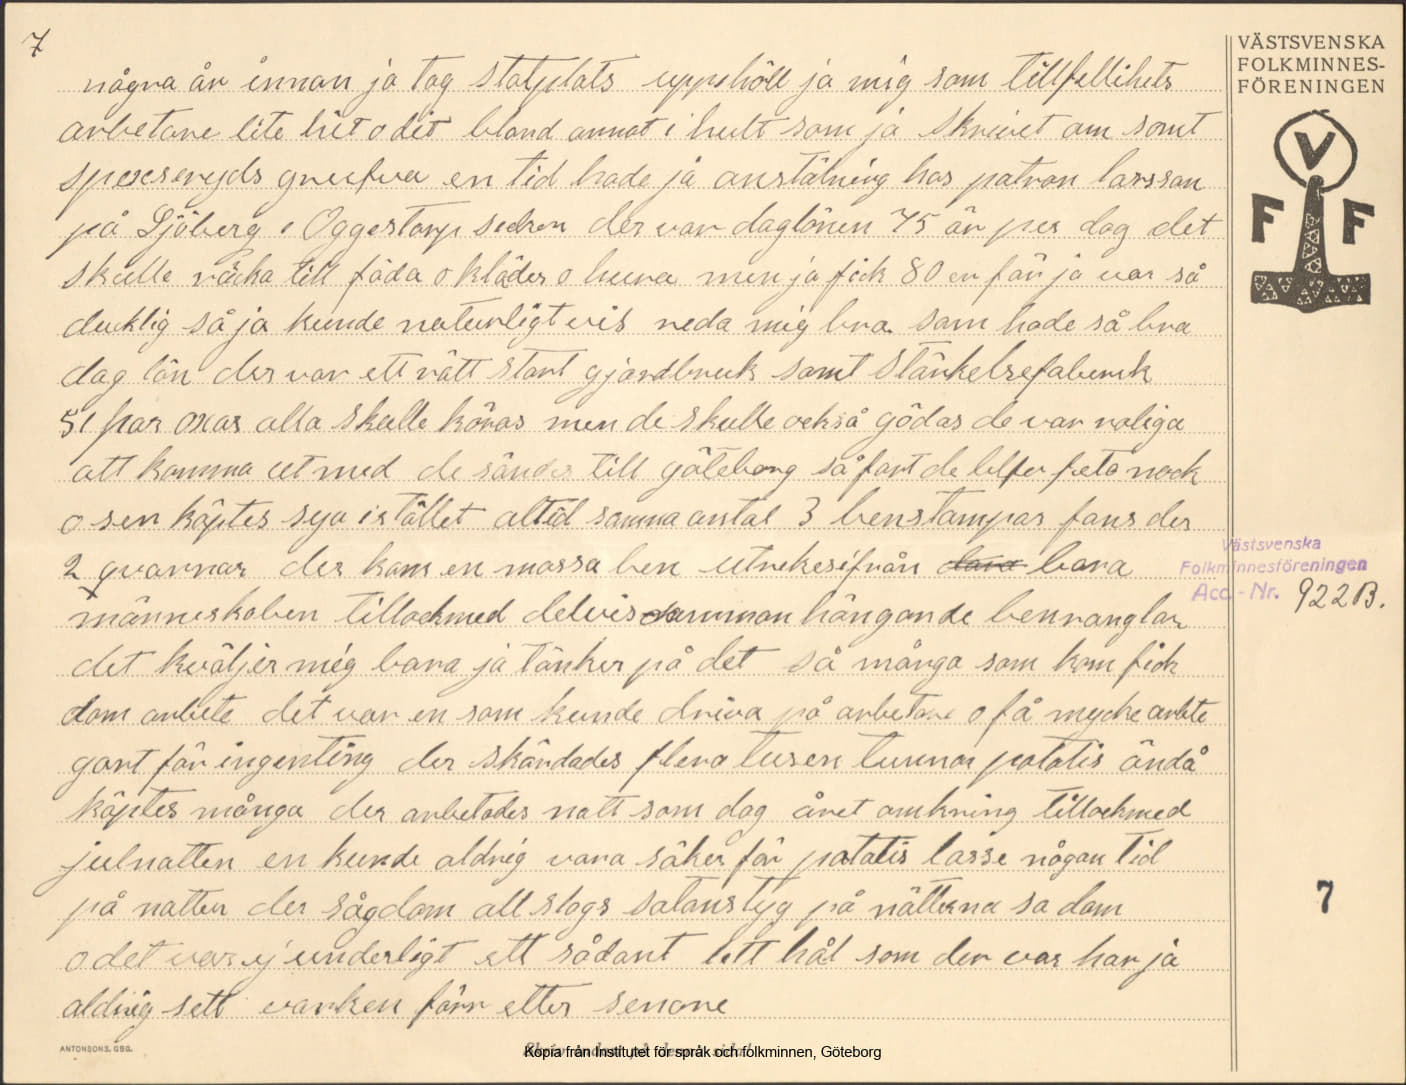 7
några år innan ja tog statplats uppehöll ja mig som tillfellihets
arbetare lite hit o dit bland annat i hult som ja skrivet om samt
spexeryds grufva en tid hade jå anstälning hos patron larsson
på Sjöberg i Oggestorp socken der var daglönen 75 ör per dag det
skulle räcka till föda o kläder o hura men ja fick 80 en för ja var så
ducklig så ja kunde naturligtvis reda mig bra som hade så bra
dag lön der var ett rätt stort gjordbruk samt stärkelsefaberik
51 par oxar alla skulle köras men de skulle också gödas de var roliga
att komma ut med de sändes till göteborg så fort de blifer feta nock
o sen köptes nya istället altid samma antal 3 benstampar fans der
2 qvarnar der kom en massa ben utrikesifrån bara bara
människoben tillockmed delvis samman hängande benranglar
det kväljer mig bara ja tänker på det så många som kom fick
dom arbete det var en som kunde driva på arbetare o få mycke arbte
gort för ingenting der skördades flera tusen tunnor potatis ändå
köptes många der arbetades natt som dag året omkring tillockmed
julnatten en kunde aldrig vara säker för potatis lasse någon tid
på natten der sågdom all slogs satanstyg på nätterna sa dom
o det var ej underligt ett sådant lett hål som der var har ja
aldrig sett varken förr eller senare
ANTONSONS, GBG.
Kopia från Institutet för språk och folkminnen, Göteborg
VÄSTSVENSKA
FOLKMINNES-
FÖRENINGEN
V
F F
Västsvenska
Folkminnesföreningen
Acc.-Nr. 922B.
7